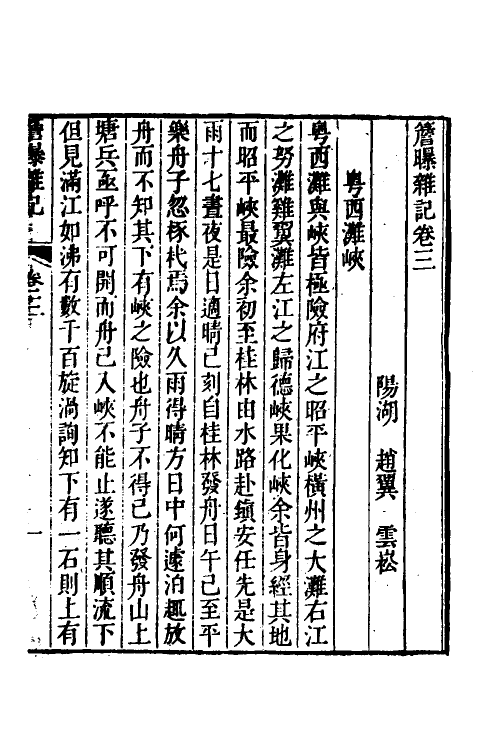 簷曝雜記卷三
陽湖 趙翼 雲崧
粵西灘峽
粵西灘與峽皆極險府江之昭平峽橫州之大灘右江
之努灘雞翼灘左江之歸德峽果化峽余皆身經其地
而昭平峽最險余初至桂林由水路赴鎭安任先是大
雨十七晝夜是日適晴已刻自桂林發舟日午已至平
樂舟子忽椓杙焉余以久雨得晴方日中何遽泊趣放
舟而不知其下有峽之險也舟子不得已乃發舟山上
塘兵亟呼不可開而舟已入峽不能止遂聽其順流下
但見滿江如沸有數千百旋渦詢知下有一石則上有
簷曝雜記 卷三 一